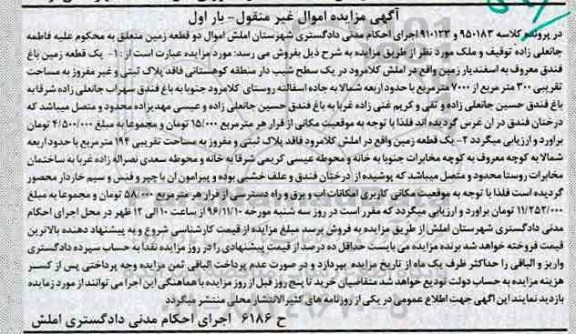 آگهی مزایده اموال غیر منقول - بار اول
در پرونده کلاسه ۹۵۰۱۸۳ و ۹۱۰۱۲۳ اجرای احکام مدنی دادگستری شهرستان املش اموال دو قطعه زمین متعلق به محکوم علیه فاطمه
جانعلی زاده توقیف و ملک مورد نظر از طریق مزایده به شرح ذیل بفروش می رسد: مورد مزایده عبارت است از :۱- یک قطعه زمین باغ
فندق معروف به اسفندیار زمین واقع در املش کلامرود در یک سطح شیب دار منطقه کوهستانی فاقد پلاک ثبتی و غیر مفروز به مساحت
تقریبی ۳۰۰ متر مربع از ۷۰۰۰ مترمربع با حدود اربعه شمالا به جاده اسفالته روستای کلامرود جنوبا به باغ فندق سهراب جانعلی زاده شرقا به
باغ فندق حسین جانعلی زاده و تقی و کریم غنی زاده غربا به باغ فندق حسین جانعلی زاده و عیسی مهدیزاده محدود و متصل میباشد که
درختان فندق در آن غرس گردیده اند فلذا با توجه به موقعیت مکانی از قرار هر مترمربع ۱۵/۰۰۰ تومان و مجموعا به مبلغ ۴/۵۰۰/۰۰۰ تومان
براورد و ارزیابی میگردد ۲- یک قطعه زمین واقع در املش کلامرود فاقد پلاک ثبتی و مفروز به مساحت تقریبی ۱۹۴ مترمربع با حدود اربعه
شمالا به کوچه معروف به کوچه مخابرات جنوبا به خانه و محوطه عیسی کریمی شرقا به خانه و محوطه سعدی نصراله زاده غربا به ساختمان
مخابرات روستا محدود و متصل میباشد که پوشیده از درختان فندق و علف خشبی بوده و پیرامون آن با چپر و فنس و سیم خاردار محصور
گردیده است فلذا با توجه به موقعیت مکانی کاربری امکانات آب و برق و راه دسترسی از قرار هر مترمربع ۵۸/۰۰۰ تومان و مجموعا به مبلغ
۱۱/۲۵۲/۰۰۰ تومان براورد و ارزیابی میگردد که مقرر است در روز سه شنبه مورخه ۹۶/۱۱/۱۰ از ساعت ۱۰ الی ۱۲ ظهر در محل اجرای احکام
مدنی دادگستری شهرستان املش از طریق مزایده به فروش برسد مبلغ مزایده از قیمت کارشناسی شروع و به پیشنهاد دهنده بالاترین
قیمت فروخته خواهد شد برنده مزایده می بایست حداقل ده درصد از قیمت پیشنهادی را در روز مزایده نقدا به حساب سپرده دادگستری
واریز و الباقی را حداکثر ظرف یک ماه از تاریخ مزایده بپردازد و در صورت عدم پرداخت الباقی ثمن مزایده وجه پرداختی پس از کسر
هزینه مزایده به حساب دولت تودیع خواهد شد متقاضیان خرید تا پنج روز قبل از روز مزایده با هماهنگی این اجرا می توانند از مورد مزایده
بازدید نمایند این آگهی جهت اطلاع عمومی در یکی از روزنامه های کثیرالانتشار محلی منتشر میگردد
ح ۶۱۸۶ اجرای احکام مدنی دادگستری املش